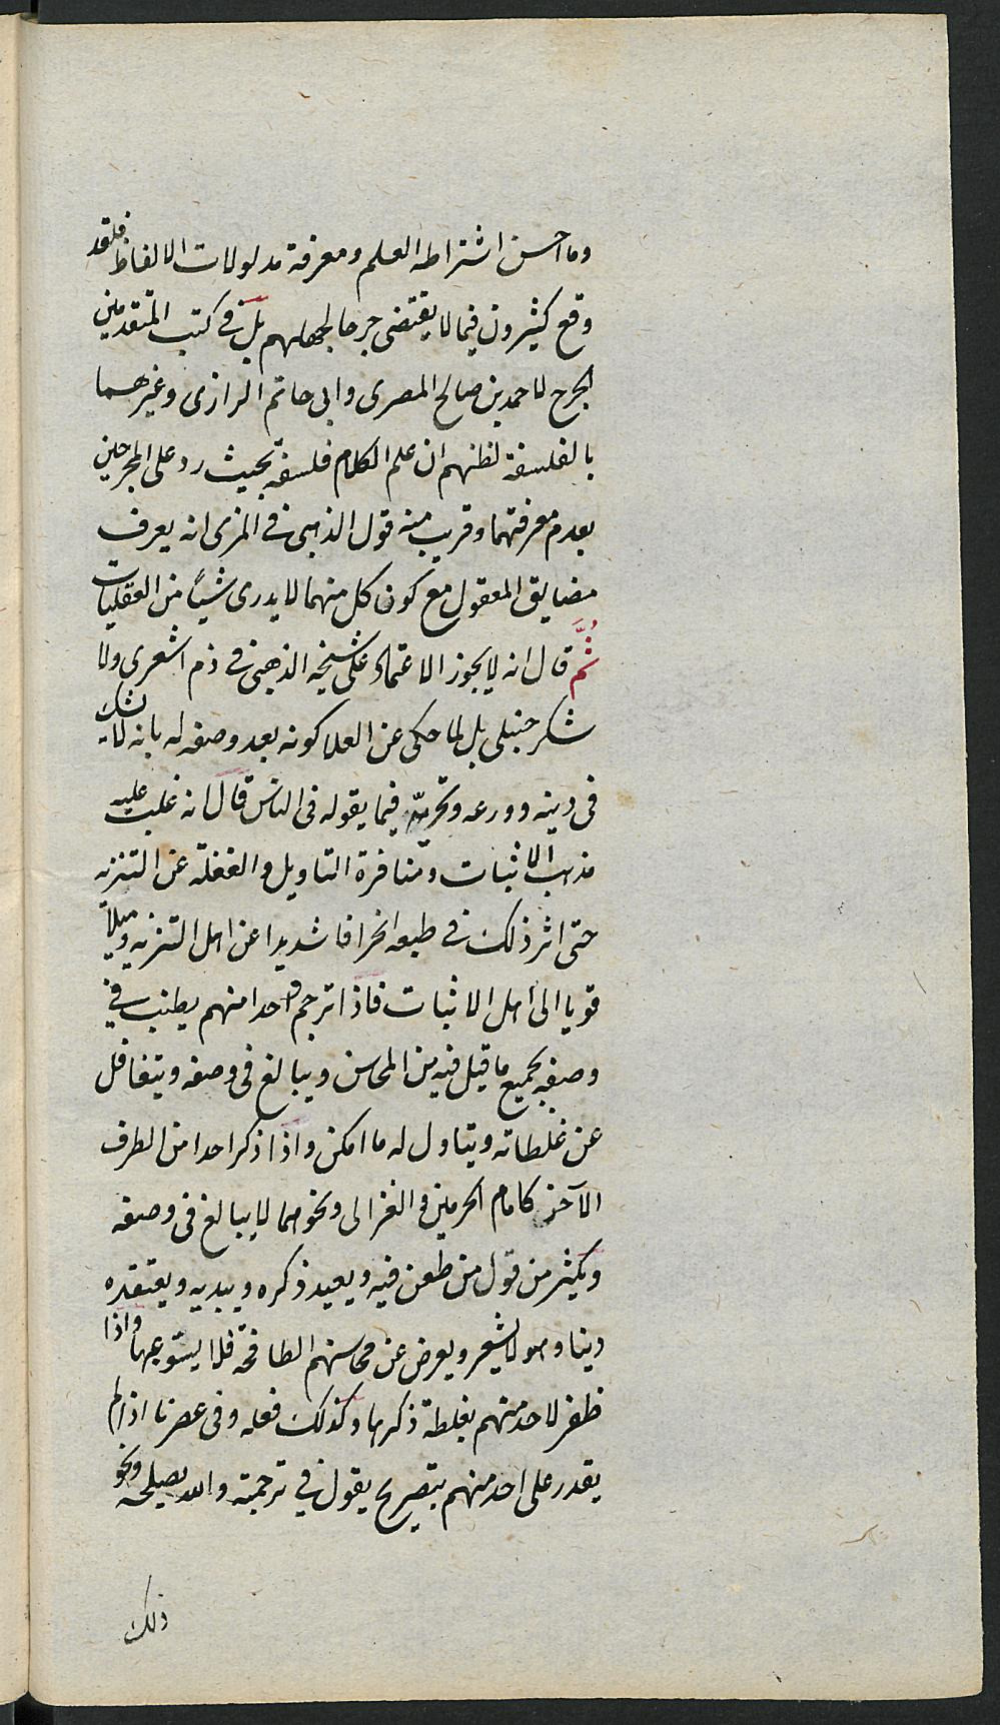 وما احسن اشتراطه العلم ومعرفة مدلولات الالفاظ فلقد
وقع كثيرون فيما لا يقتضى جرحا لجهلهم بل فى كتب المتقدمين
الجرح لاحمد بن صالح المصرى وابى حاتم الرازى وغيرهما
بالفلسفة لظنهم ان علم الكلام فلسفة بحيث رد على المجرحين
بعدم معرفتهما وقريب منه قول الذهبى فى المزى انه يعرف
مضايق المعقول مع كون كل منهما لا يدرى شيأ من العقليات
ثم قال انه لا يجوز الاعتماد على شيخه الذهبى فى ذم اشعرى ولا
شكر حنبلى بل لما حكى عن العلا كونه بعد وصفه له بانه لا شك
فى دينه وورعه وتحريه فيما يقوله فى الناس قال انه غلب عليه
مذهب الاثبات ومنافرة التاويل والغفلة عن التنزيه
حتى اثر ذلك فى طبعه انحرافا شديدا عن اهل التنزيه وميلا
قويا الى اهل الاثبات فاذا ترجم واحدا منهم يطنب فى
وصفه بجميع ما قيل فيه من المحاسن ويبالغ فى وصفه ويتغافل
عن غلطاته ويتاول له ما امكن واذا ذكر احدا من الطرف
الآخر كامام الحرمين والغزالى ونحوهما لا يبالغ فى وصفه
ويكثر من قول من طعن فيه ويعيد ذكره ويبديه ويعتقده
دينا وهو لا يشعر ويعرض عن محاسنهم الطافحة فلا يستوعبها واذا
ظفر لاحد منهم بغلطة ذكرها وكذلك فعله وفى عصرنا اذا لم
يقدر على احد منهم بتصريح يقول فى ترجمته والله يصلحه ونحو
ذلك